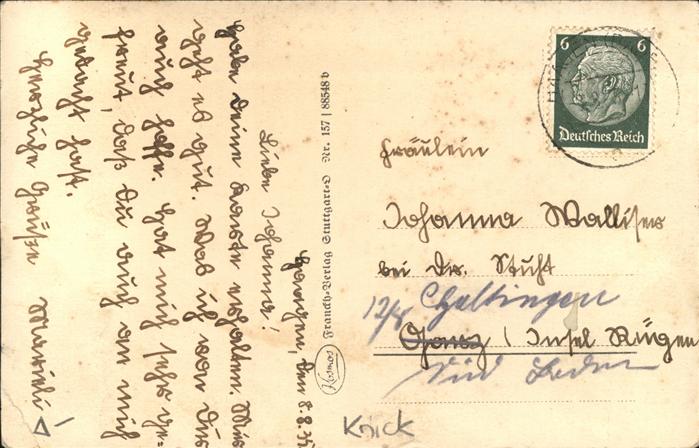 Haagen, den 8.8.35
Liebe Johanna!
Habe Deine Karte erhalten. Mir
geht es gut. Was ich von Dir
auch hoffe. Hat mich sehr ge=
freut, daß Du auch an mich
gedacht hast.
Herzliche Grüße Marieli
Kosmos Franckh-Verlag Stuttgart-O Nr. 157 | 88548 b
6 6
Deutsches Reich
Fräulein
Johanna Walliser
bei Dr. Stuht
12/8
Garz / Insel Rügen
Süd Baden
Knick